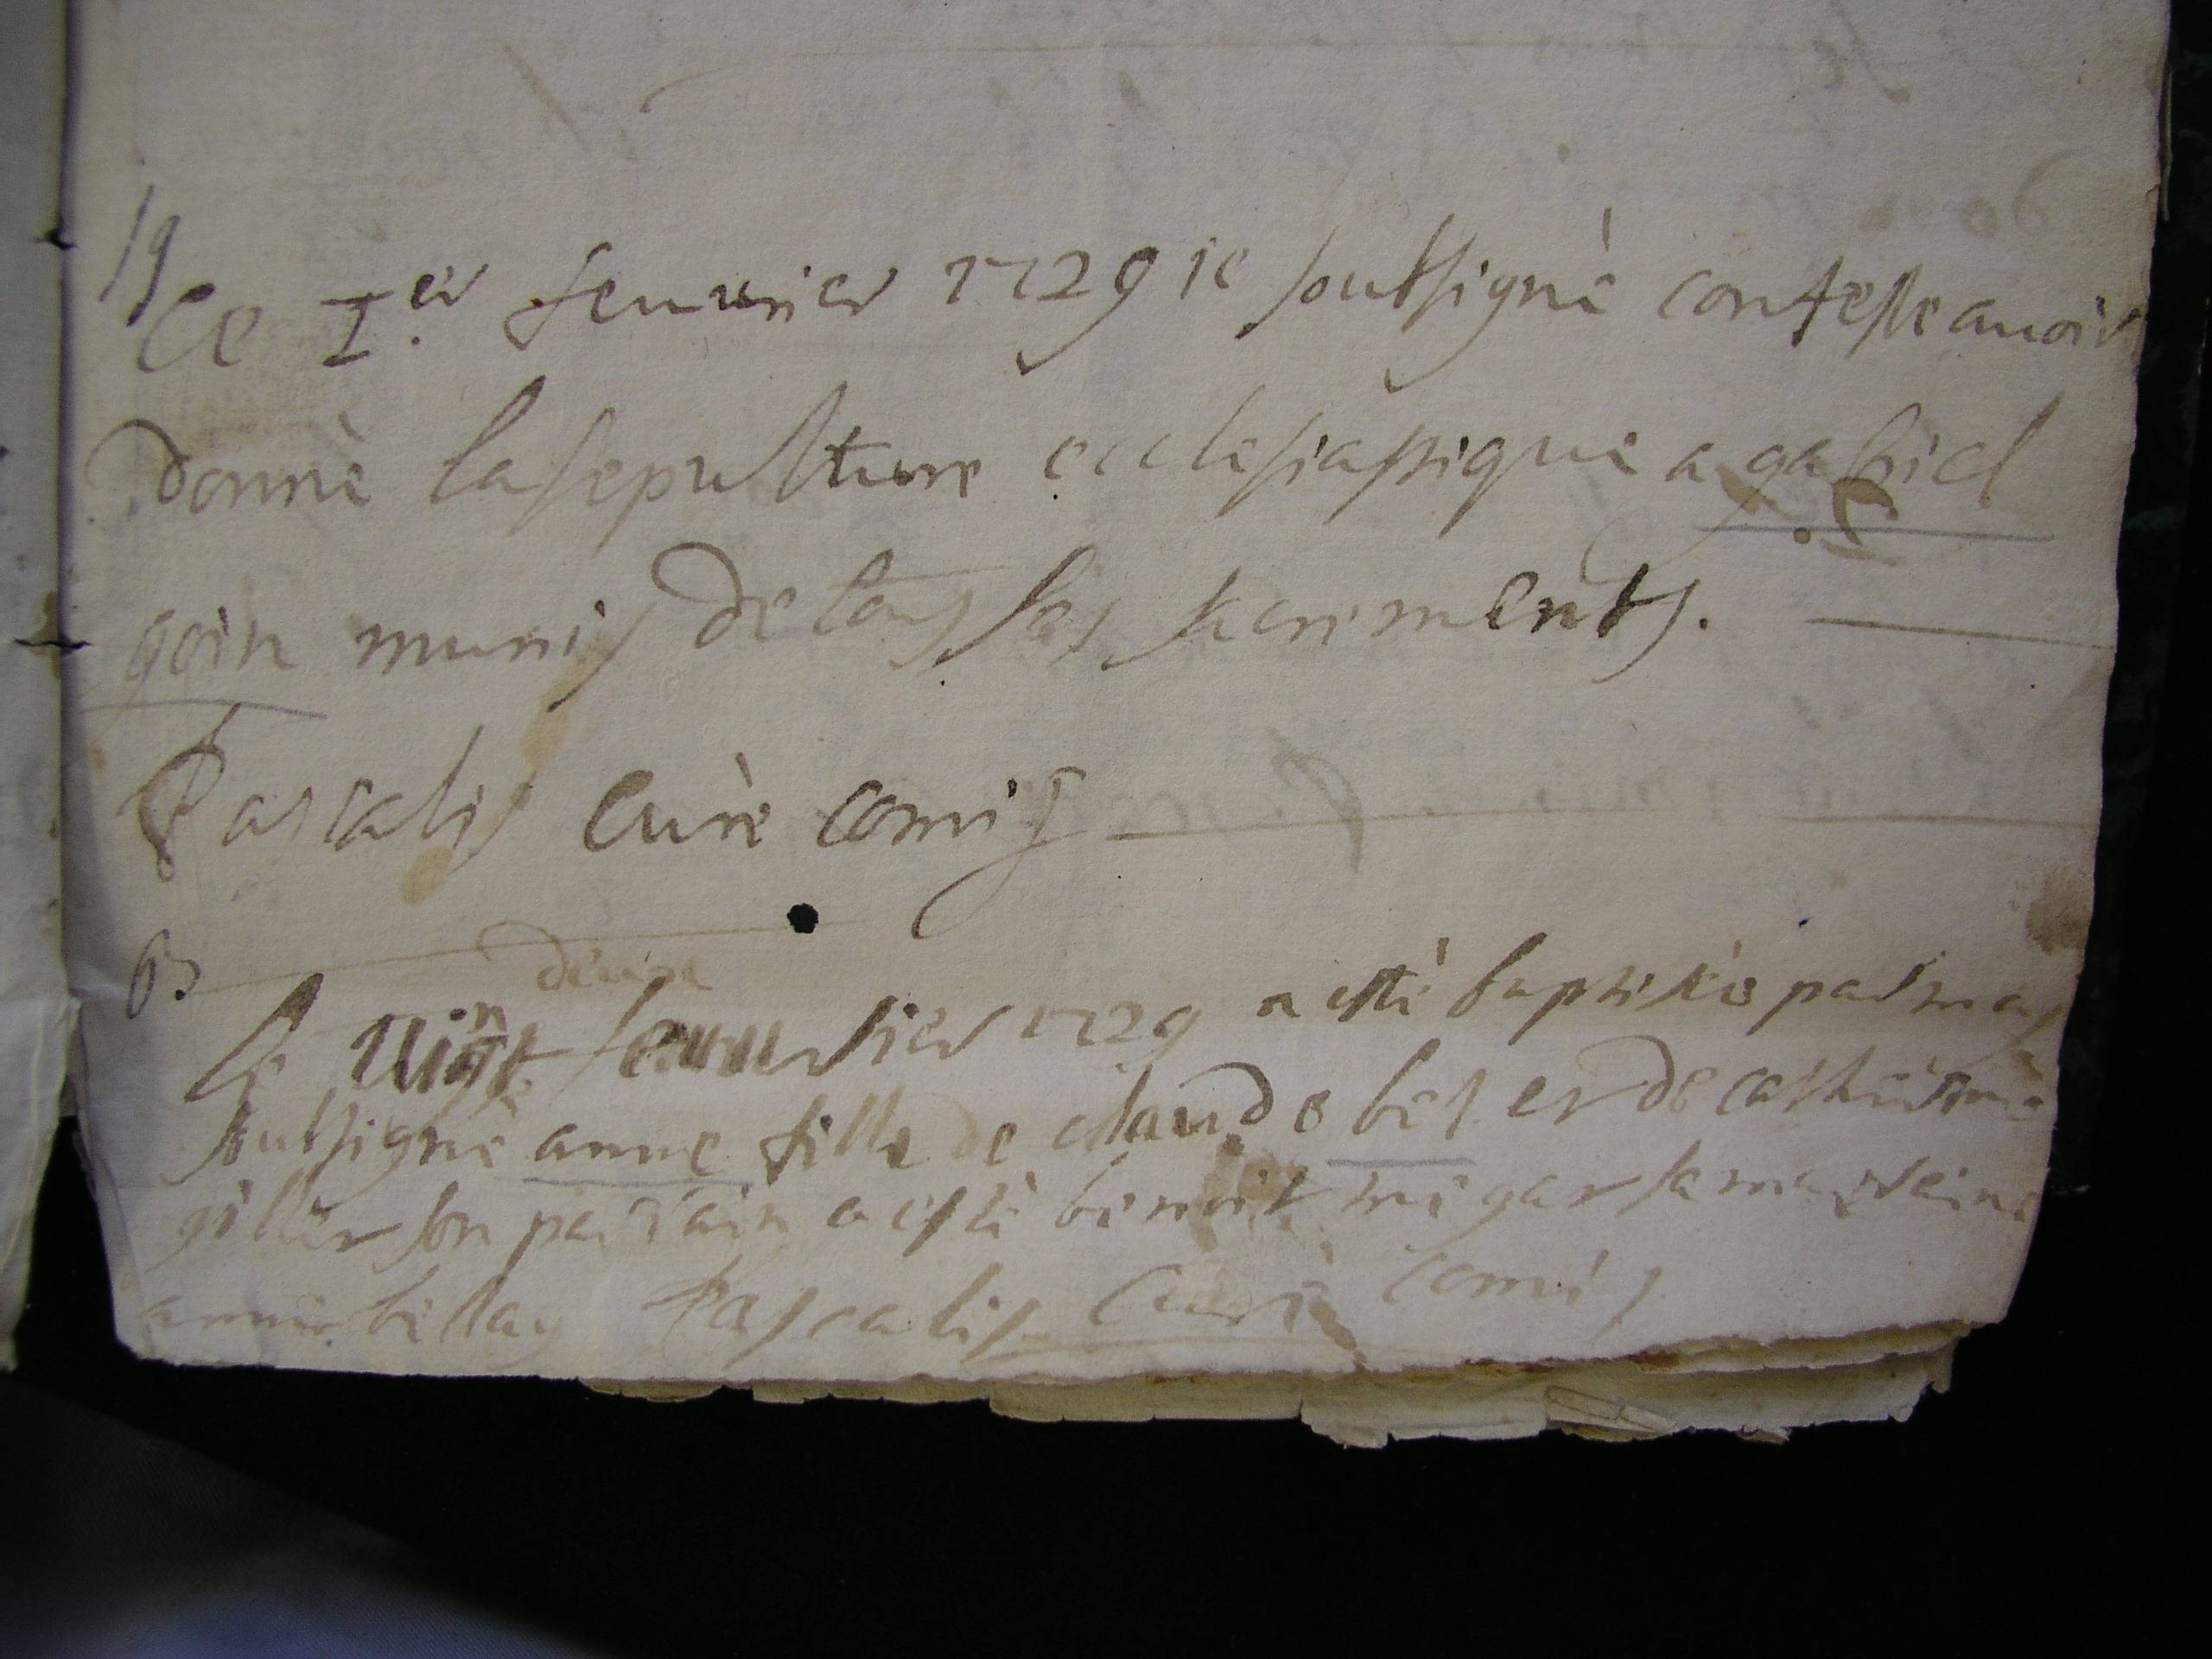 19
Ce I.er feuurier 1729 ie soutsignè confesse auoir
donnè la sepulture ecclesiastique a gabriel
goin munis de tous ses sacrements.
Pascalis Curè comis
6
deux
Le feuurier 1729 a estè baptisèe par moy
soutsignè anne fille de claude bes et de catherine
giller son parrain a estè benoit mi gar sa marraine
anne belay Pascalis Curè comis